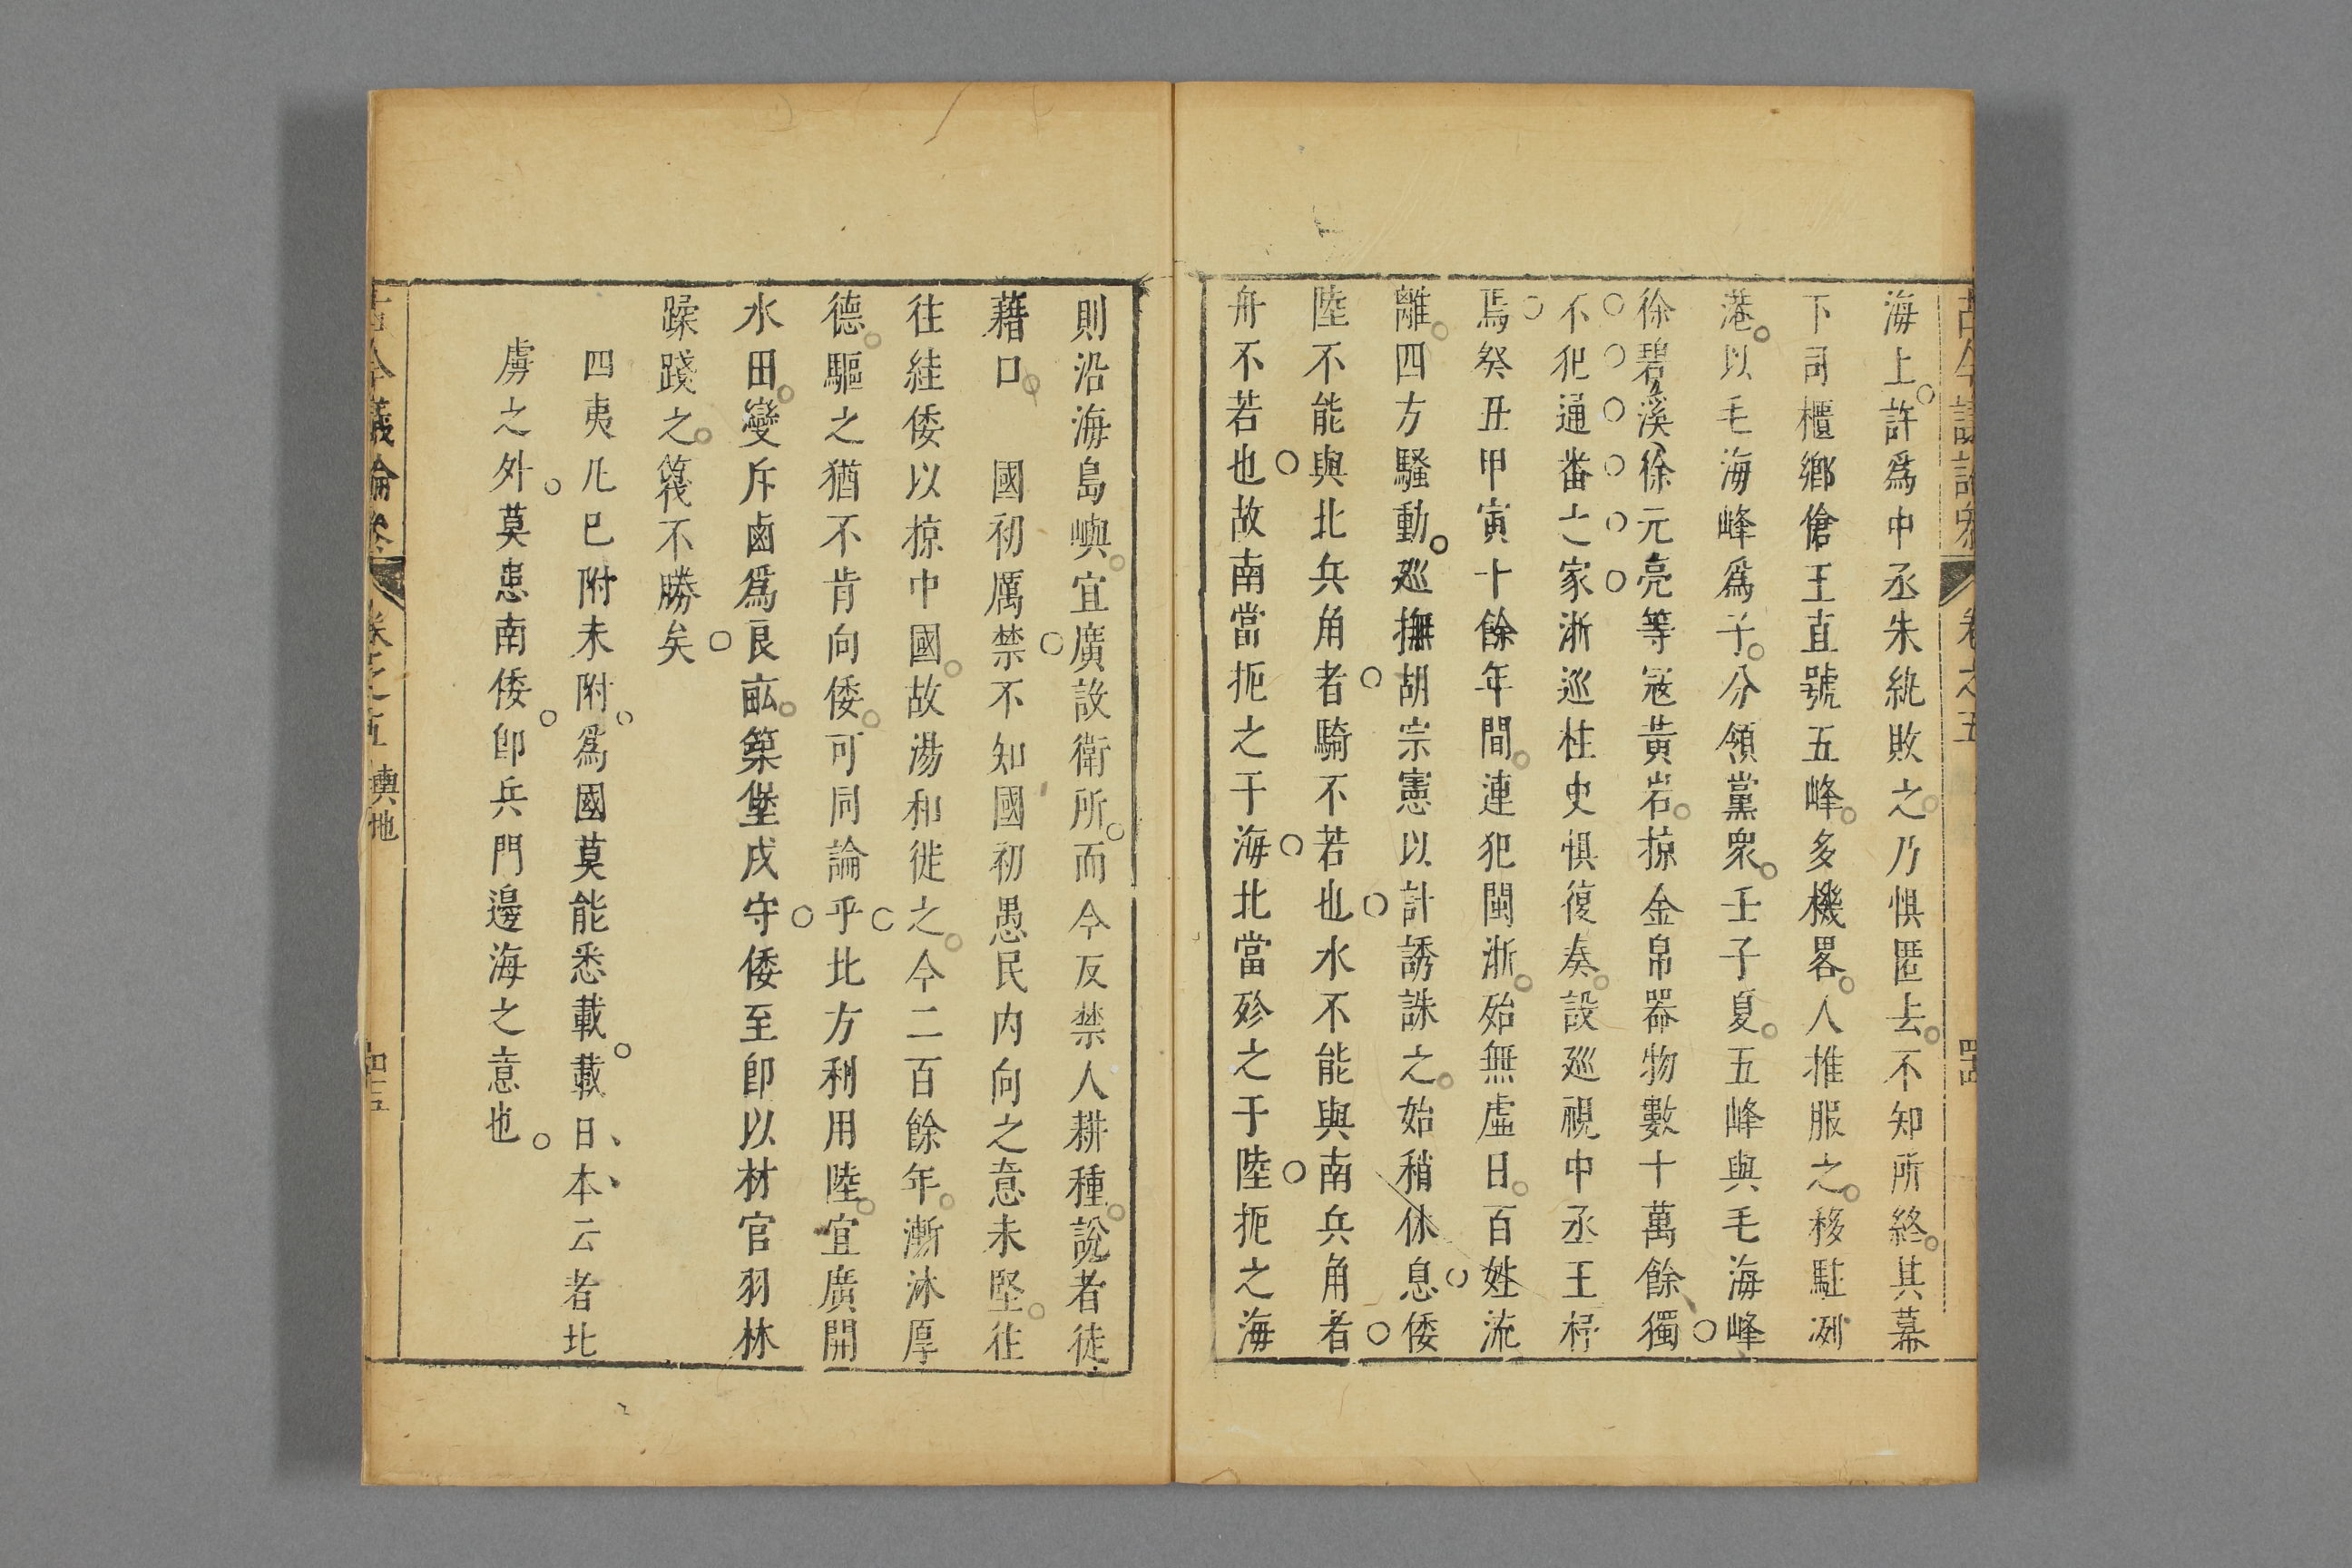 古今議論叅 卷之五 四十四
海上許爲中丞朱紈敗之乃惧匿去不知所終其幕
下司櫃鄉傖王直號五峰多機畧人推服之移駐洌
港以毛海峰爲子分領黨衆壬子夏五峰與毛海峰
徐碧溪徐元亮等寇黃岩掠金帛器物數十萬餘獨
不犯通番之家浙巡柱史惧復奏設巡視中丞王杼
焉癸丑甲寅十餘年間連犯閩浙殆無虛日百姓流
離四方騷動廵撫胡宗憲以計誘誅之始稍休息倭
陸不能與北兵角者騎不若也水不能與南兵角者
舟不若也故南當扼之于海北當殄之于陸扼之海
則沿海島嶼宜廣設衛所而今反禁人耕種說者徒
藉口 國初厲禁不知國初愚民內向之意未堅往
往絓倭以掠中國故湯和徙之今二百餘年漸沐厚
德驅之猶不肯向倭可同論乎北方利用陸宜廣開
水田變斥鹵爲良畝築堡戍守倭至卽以材官羽林
蹂踐之篾不勝矣
四夷凡已附未附爲國莫能悉載載日本云者北
虜之外莫患南倭卽兵門邊海之意也
古今議論叅 卷之五 輿地 四十五